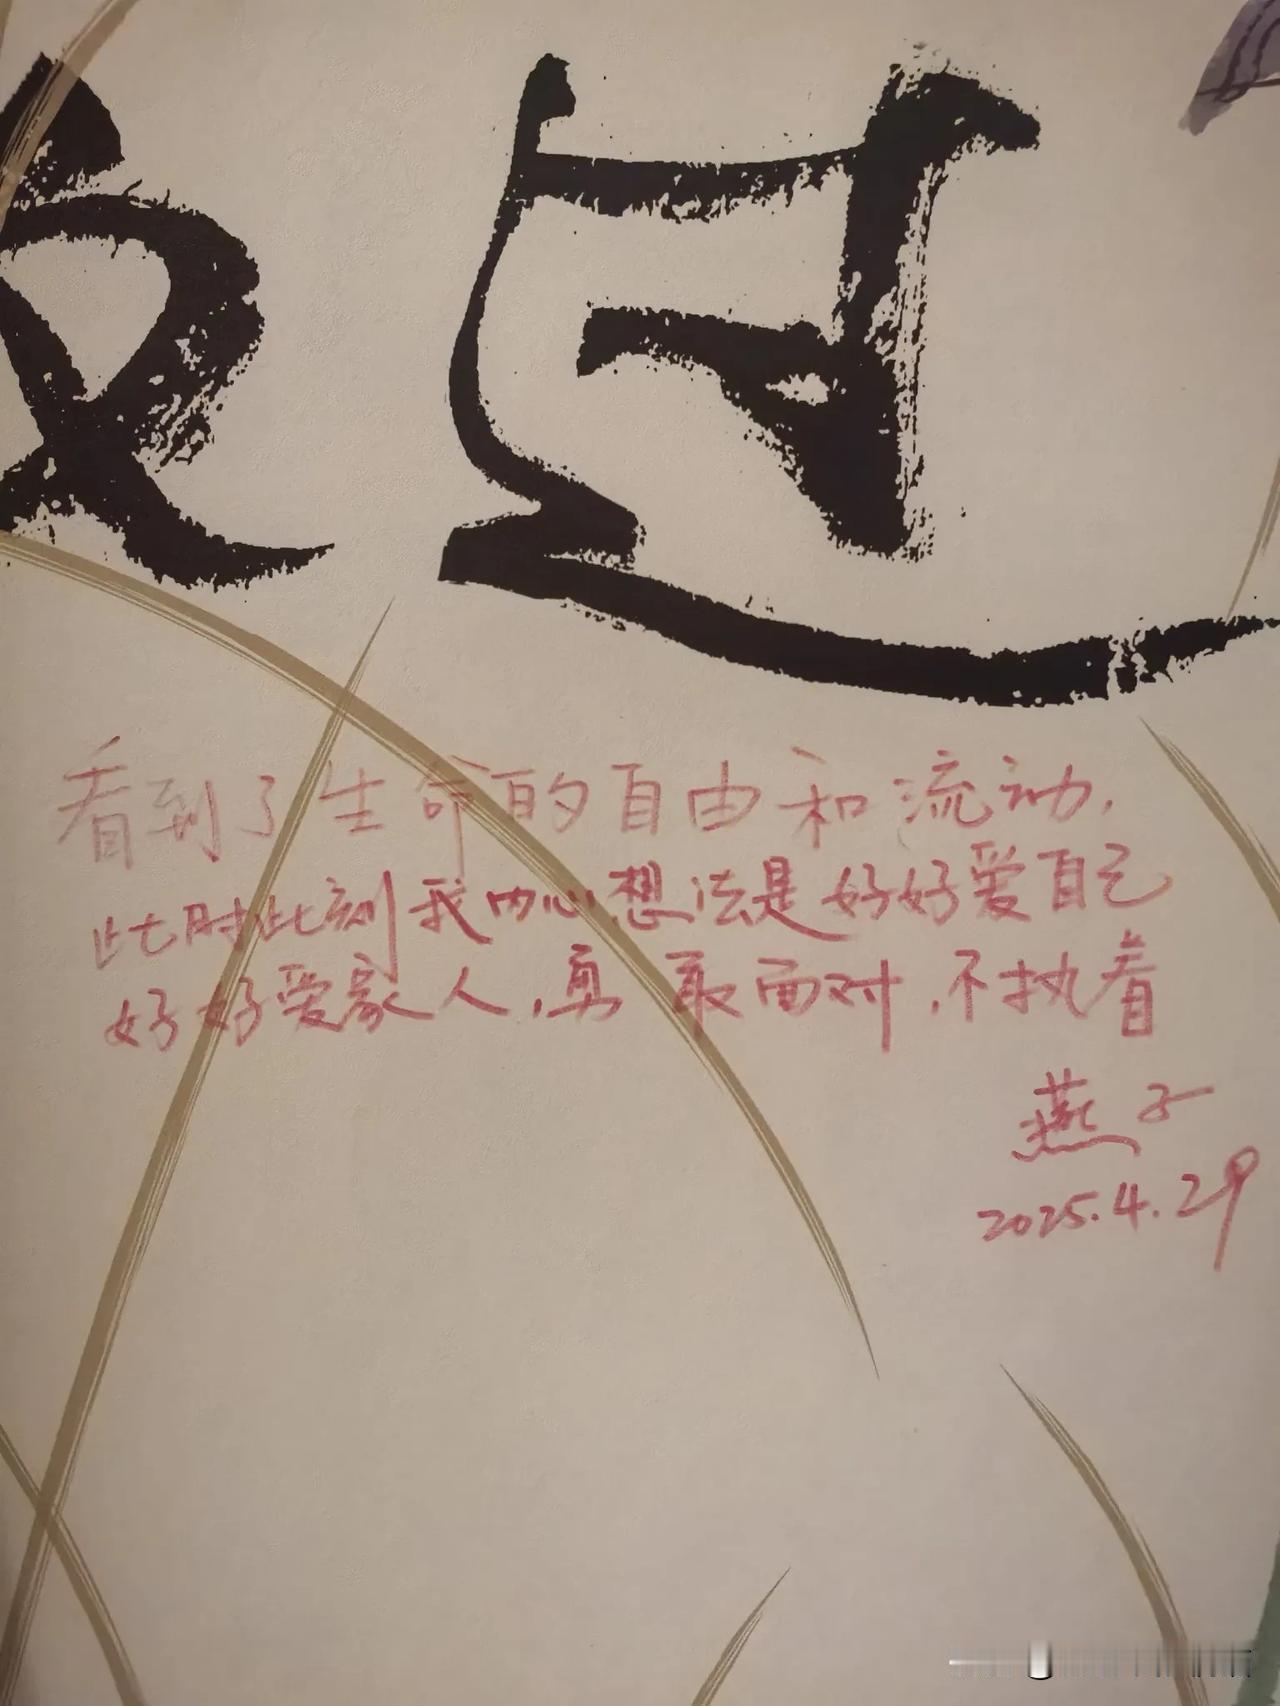 看到了生命的自由和流动,
此时此刻我内心想法是好好爱自己
好好爱家人,勇敢面对,不执着
燕子
2025.4.29